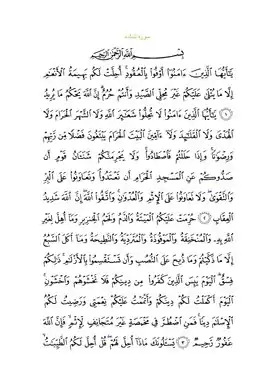 سورة المائدة
بِسْمِ اللَّهِ الرَّحْمَٰنِ الرَّحِيمِ
يَٰٓأَيُّهَا الَّذِينَ ءَامَنُوٓا أَوْفُوا بِالْعُقُودِ أُحِلَّتْ لَكُم بَهِيمَةُ الْأَنْعَٰمِ
إِلَّا مَا يُتْلَىٰ عَلَيْكُمْ غَيْرَ مُحِلِّي الصَّيْدِ وَأَنتُمْ حُرُمٌ إِنَّ اللَّهَ يَحْكُمُ مَا يُرِيدُ
١ يَٰٓأَيُّهَا الَّذِينَ ءَامَنُوا لَا تُحِلُّوا شَعَٰٓئِرَ اللَّهِ وَلَا الشَّهْرَ الْحَرَامَ وَلَا
الْهَدْيَ وَلَا الْقَلَٰٓئِدَ وَلَآ ءَآمِّينَ الْبَيْتَ الْحَرَامَ يَبْتَغُونَ فَضْلًا مِّن رَّبِّهِمْ
وَرِضْوَٰنًا وَإِذَا حَلَلْتُمْ فَاصْطَادُوا وَلَا يَجْرِمَنَّكُمْ شَنَـَٔانُ قَوْمٍ أَن
صَدُّوكُمْ عَنِ الْمَسْجِدِ الْحَرَامِ أَن تَعْتَدُوا وَتَعَاوَنُوا عَلَى الْبِرِّ
وَالتَّقْوَىٰ وَلَا تَعَاوَنُوا عَلَى الْإِثْمِ وَالْعُدْوَٰنِ وَاتَّقُوا اللَّهَ إِنَّ اللَّهَ شَدِيدُ
الْعِقَابِ ٢ حُرِّمَتْ عَلَيْكُمُ الْمَيْتَةُ وَالدَّمُ وَلَحْمُ الْخِنزِيرِ وَمَآ أُهِلَّ لِغَيْرِ
اللَّهِ بِهِ وَالْمُنْخَنِقَةُ وَالْمَوْقُوذَةُ وَالْمُتَرَدِّيَةُ وَالنَّطِيحَةُ وَمَآ أَكَلَ السَّبُعُ
إِلَّا مَا ذَكَّيْتُمْ وَمَا ذُبِحَ عَلَى النُّصُبِ وَأَن تَسْتَقْسِمُوا بِالْأَزْلَٰمِ ذَٰلِكُمْ
فِسْقٌ الْيَوْمَ يَئِسَ الَّذِينَ كَفَرُوا مِن دِينِكُمْ فَلَا تَخْشَوْهُمْ وَاخْشَوْنِ
الْيَوْمَ أَكْمَلْتُ لَكُمْ دِينَكُمْ وَأَتْمَمْتُ عَلَيْكُمْ نِعْمَتِي وَرَضِيتُ لَكُمُ
الْإِسْلَٰمَ دِينًا فَمَنِ اضْطُرَّ فِي مَخْمَصَةٍ غَيْرَ مُتَجَانِفٍ لِّإِثْمٍ فَإِنَّ اللَّهَ
غَفُورٌ رَّحِيمٌ ٣ يَسْـَٔلُونَكَ مَاذَآ أُحِلَّ لَهُمْ قُلْ أُحِلَّ لَكُمُ الطَّيِّبَٰتُ